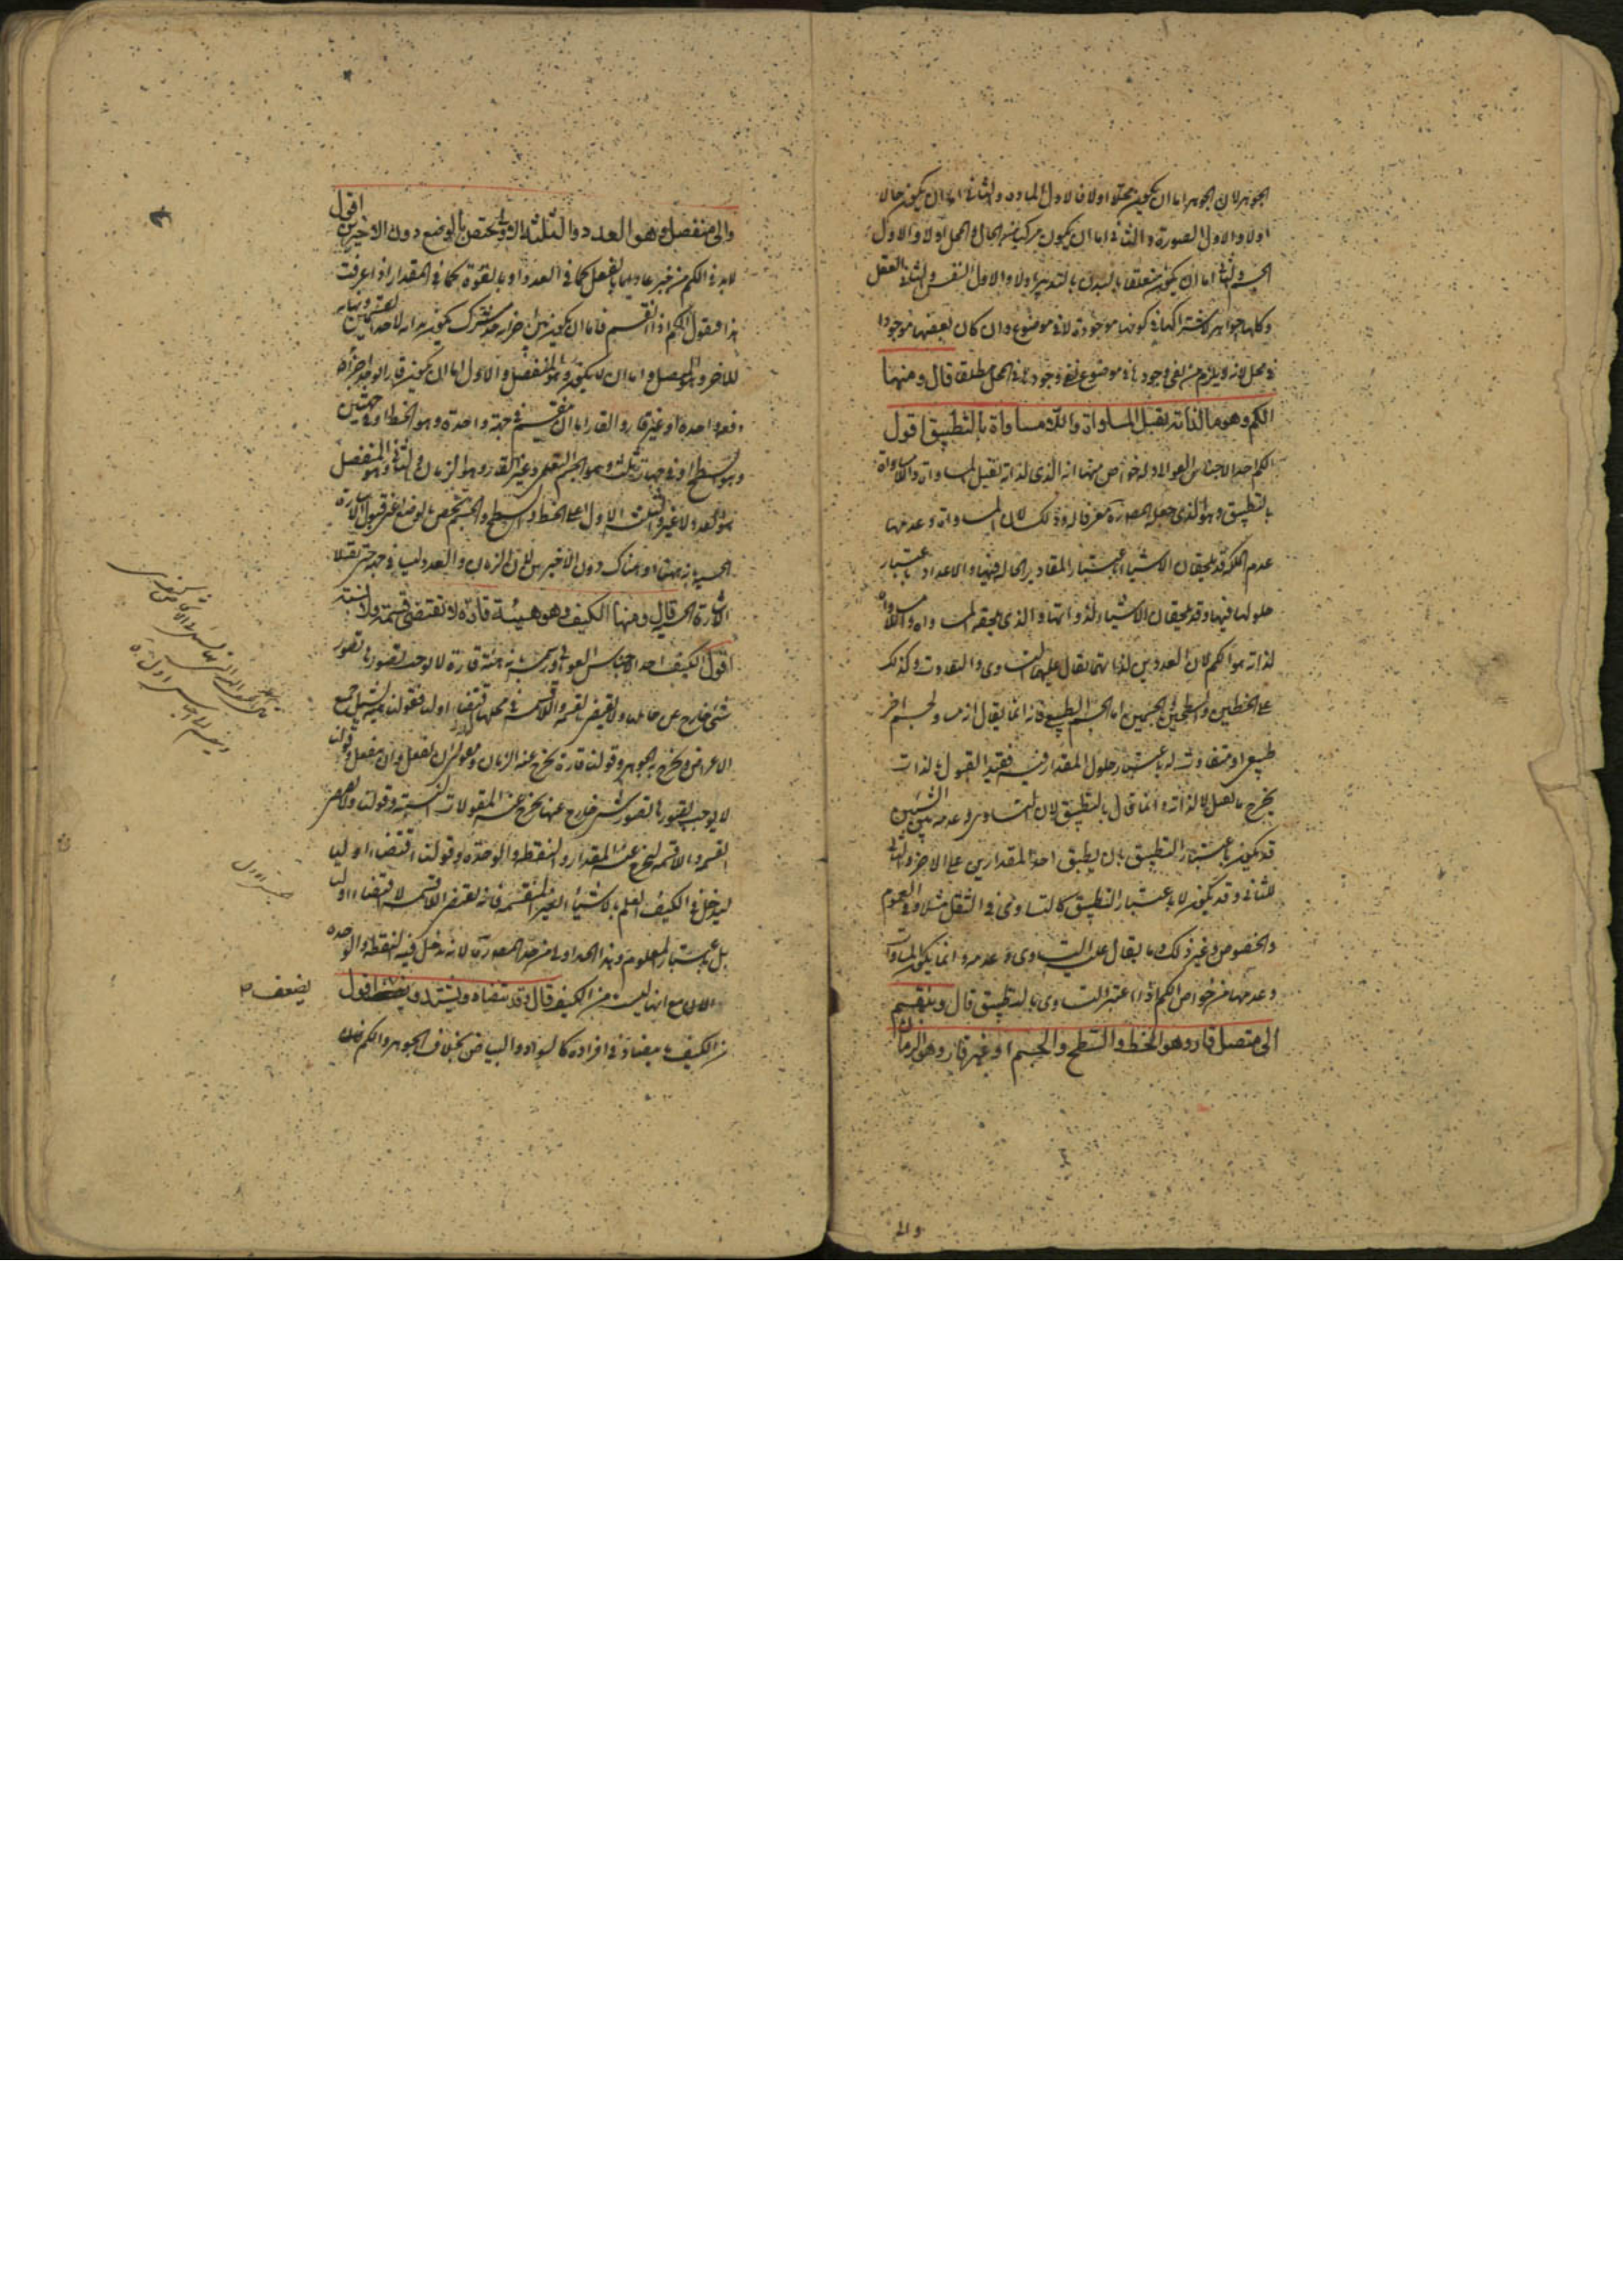 الجوهر لان الجوهر اما ان يكون محلا اولا فالاول المادة والثانى اما ان يكون حالا
اولا والاول الصورة والثانى اما ان يكون مركبا من الحال والمحل اولا والاول
الجسم والثانى اما ان يكون متعلقا بالبدن بالتدبير اولا والاول النفس والثانى العقل
وكلها جواهر لاشتراكها فى كونها موجودة لا فى موضوع وان كان بعضها موجودا
فى محل لانه لا يلزم من نفى وجودها فى موضوع نفى وجودها فى المحل مطلقا قال ومنها
الكم وهو ما لذاته يقبل المساواة واللامساواة بالتطبيق اقول
الكم احد الاجناس العوالى وله خواص منها انه الذى لذاته يقبل المساواة واللامساواة
بالتطبيق وهو الذى جعله المص رسما معرفا له وذلك لان المساواة وعدمها
عدم الملكة قد يلحقان الاشياء باعتبار المقادير الحالة فيها والاعداد باعتبار
حلولها فيها وقد يلحقان الاشياء لذواتها والذى يلحقه المساواة واللامساواة
لذاته هو الكم لان العددين لذاتهما يقال عليهما التساوى والتفاوت وكذلك
على الخطين والسطحين والجسمين اما الجسم الطبيعى فانه انما يقال انه مساو لجسم اخر
طبيعى او متفاوت له باعتبار حلول المقدار فيه فقيد القبول لذاته
يخرج ما يقبل لا لذاته وانما قال بالتطبيق لان التساوى وعدمه بين الشيئين
قد يكون باعتبار التطبيق بان يطبق احد المقدارين على الاخر والثانى
للثانى وقد يكون لا باعتبار التطبيق كالتساوى فى الثقل مثلا وفى العموم
والخصوص وغير ذلك مما يقال عليه التساوى وعدمه وانما يكون المساواة
وعدمها من خواص الكم اذا اعتبر التساوى بالتطبيق قال وينقسم
الى متصل قار وهو الخط والسطح والجسم او غير قار وهو الزمان
والى
والى منفصل وهو العدد والثلثة الاول يختص بالوضع دون الاخيرين اقول
لا بد فى الكم من خبر عاد لها بالفعل كما فى العدد او بالقوة كما فى المقدار اذا عرفت
هذا فنقول الكم اذا انقسم فاما ان يكون بين اجزائه حد مشترك يكون بداية لاحد القسمين ونهاية
للاخر وهو المتصل واما ان لا يكون وهو المنفصل والاول اما ان يكون قار الوجود اجزاؤه
دفعة واحدة او غير قار والقار اما ان ينقسم فى جهة واحدة وهو الخط او فى جهتين
وهو السطح او فى جهات ثلث وهو الجسم التعليمى وغير القار وهو الزمان والثانى وهو المنفصل
هو العدد لا غير والثلثة الاول اعنى الخط والسطح والجسم تختص بالوضع اعنى قبول الاشارة
الحسية بانه ههنا او هناك دون الاخيرين لان الزمان والعدد ليسا فى جهة حتى يقبلا
الاشارة الحسية قال ومنها الكيف وهو هيئة قارة لا تقتضى قسمة ولا نسبة
اقول الكيف احد الاجناس العوالى ورسمه بانه هيئة قارة لا يوجب تصورها تصور
شئ خارج عن حاملها ولا يقتضى القسمة واللاقسمة فى محلها اقتضاء اوليا فقولنا هيئة يشتمل جميع
الاعراض ويخرج به الجوهر وقولنا قارة يخرج عنه الزمان ومقولتى ان يفعل وان ينفعل وقولنا
لا يوجب تصورها تصور شئ خارج عنها يخرج عنه المقولات النسبية وقولنا ولا يقتضى
القسمة واللاقسمة ليخرج عنه المقدار والنقطة والوحدة وقولنا اقتضاء اوليا
ليدخل فى الكيف العلم بالاشياء الغير المنقسمة فانه يقتضى اللاقسمة لا اقتضاء اوليا
بل باعتبار المعلوم وهذا الحد اولى من حد المص لانه يدخل فيه النقطة والوحدة
والان مع انها ليست من الكيف قال وقد يتضاد ويشتد ويضعف اقول
من الكيف ما يتضاد فى افراده كالسواد والبياض بخلاف الجوهر والكم فان
يضعف